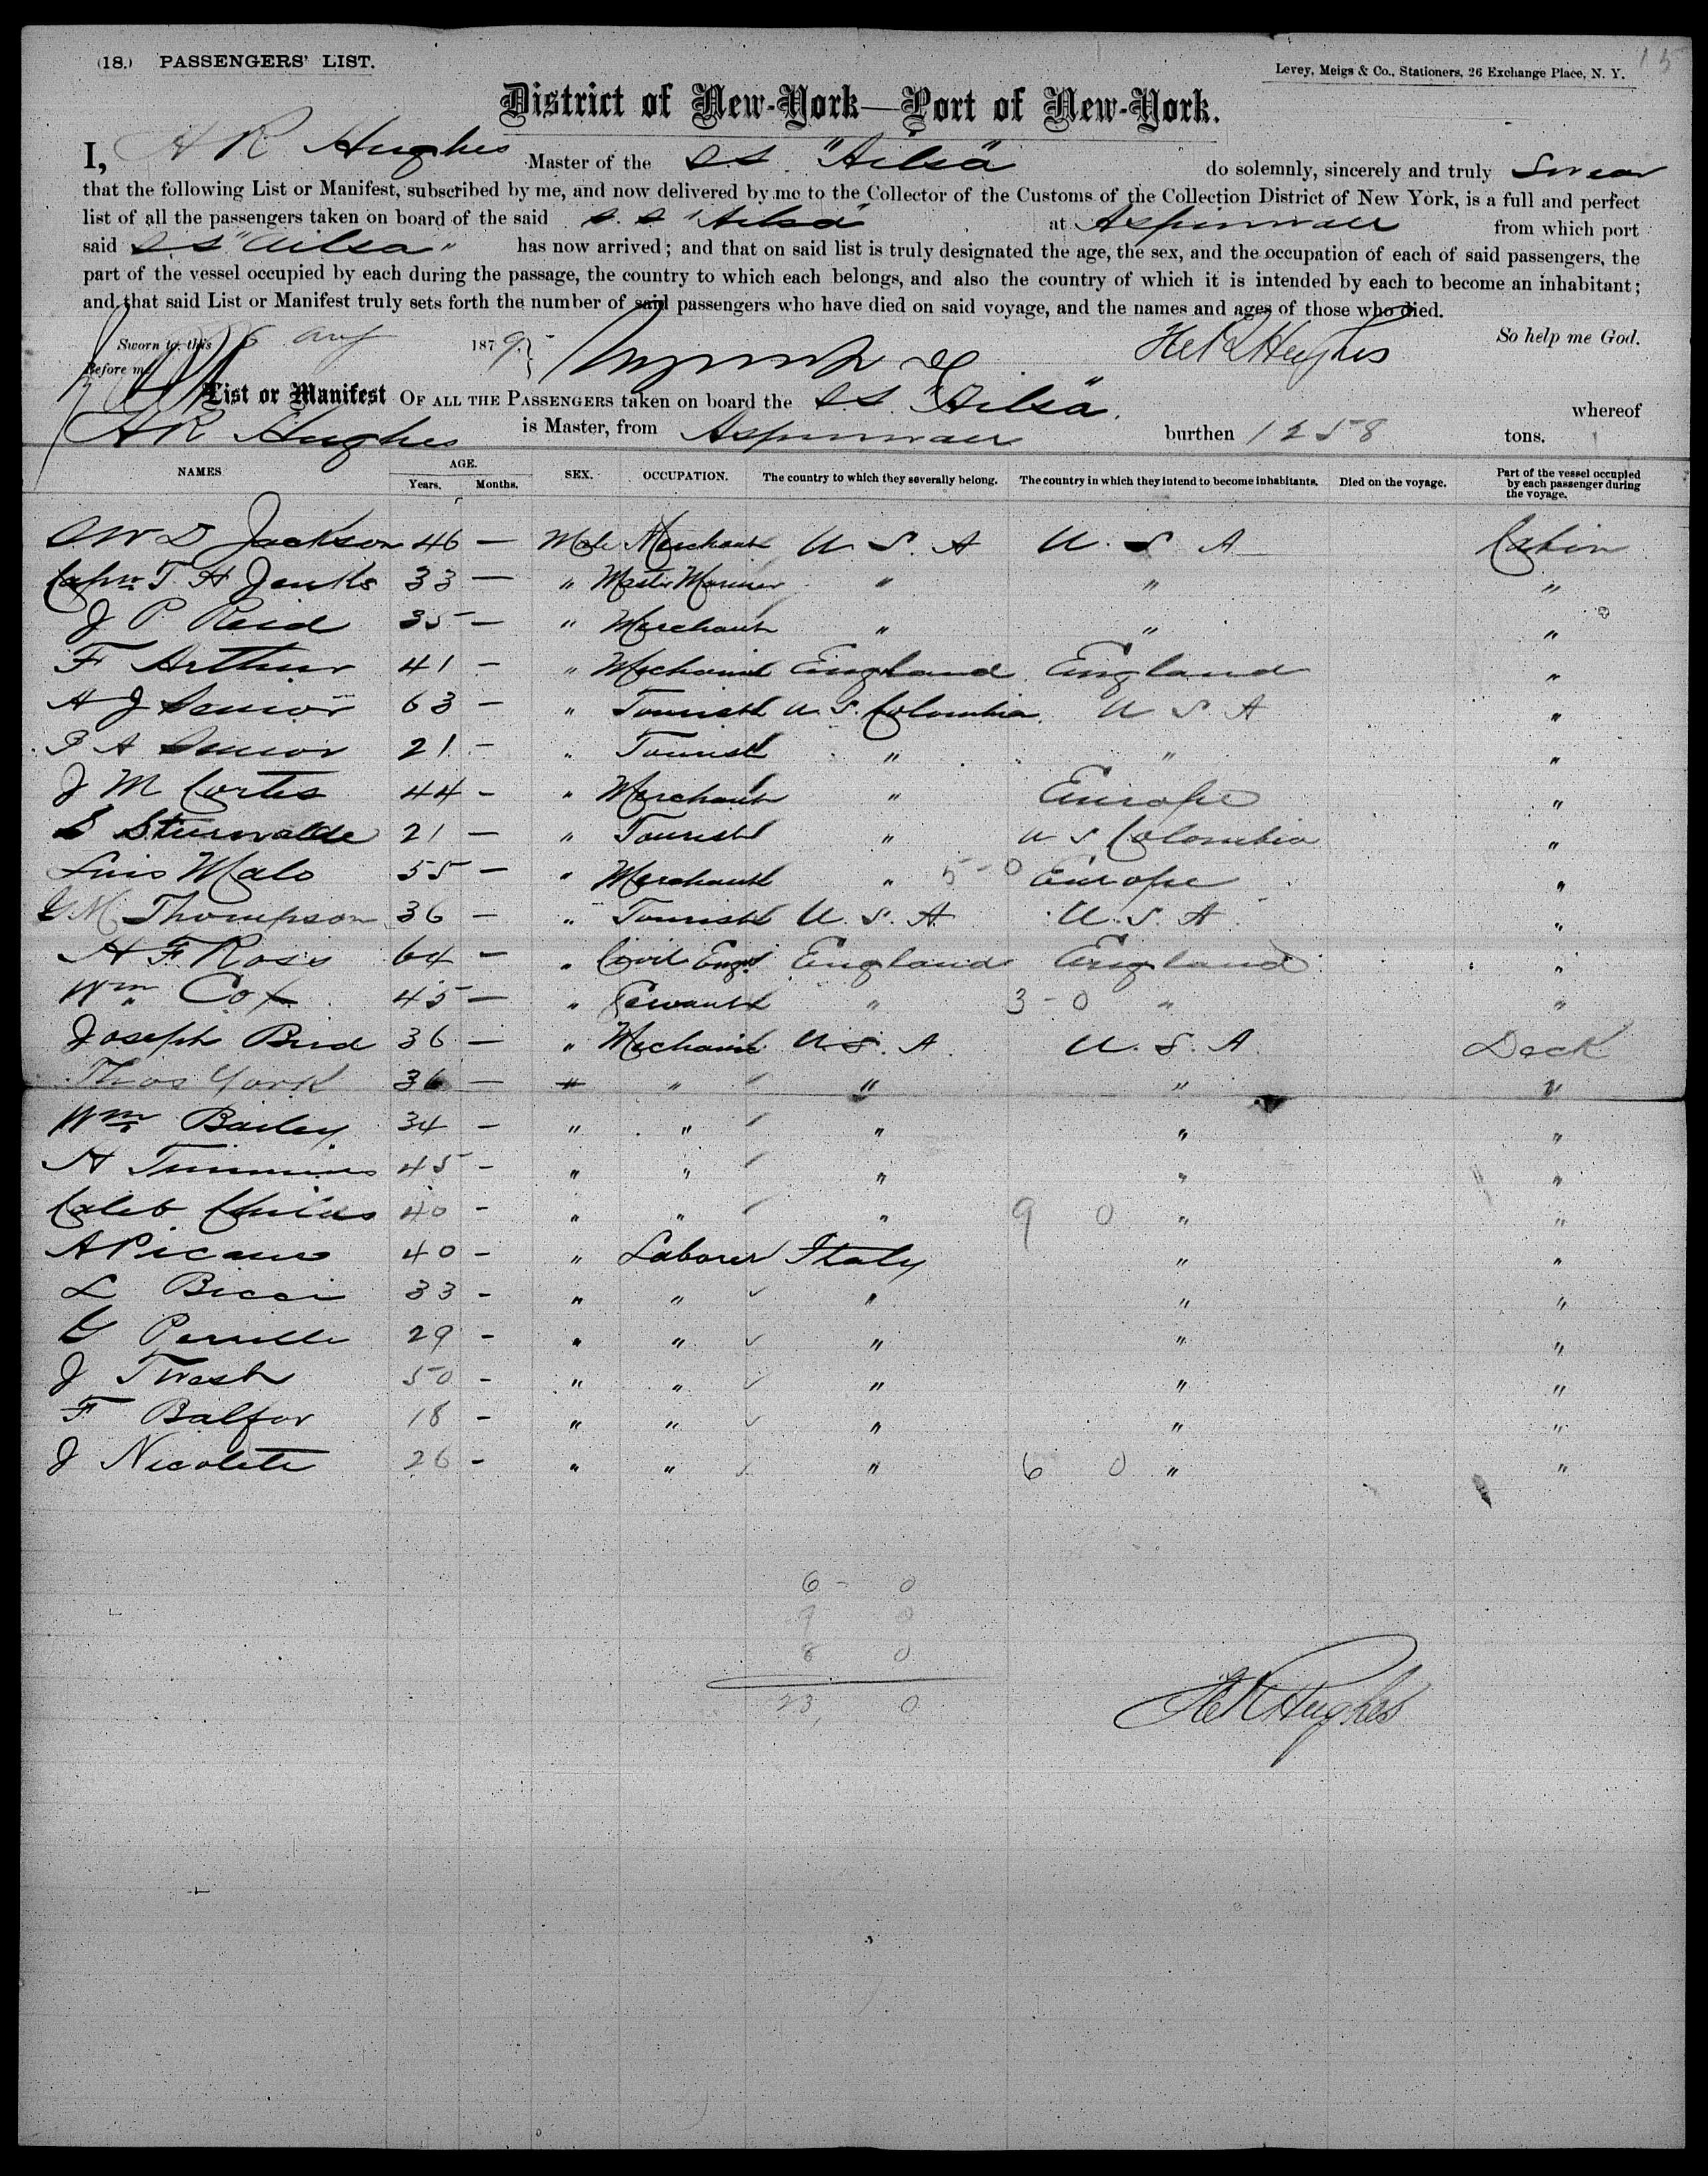 15
(18.) PASSENGERS' LIST.
Levey, Meigs & Co., Stationers, 26 Exchange Place, N. Y.
District of New-York—Port of New-York.
I, H R Hughes Master of the S.S. "Ailsa" do solemnly, sincerely and truly Swear
that the following List or Manifest, subscribed by me, and now delivered by me to the Collector of the Customs of the Collection District of New York, is a full and perfect
list of all the passengers taken on board of the said S. S "Ailsa" at Aspinwall from which port
said S S "Ailsa" has now arrived; and that on said list is truly designated the age, the sex, and the occupation of each of said passengers, the
part of the vessel occupied by each during the passage, the country to which each belongs, and also the country of which it is intended by each to become an inhabitant;
and that said List or Manifest truly sets forth the number of said passengers who have died on said voyage, and the names and ages of those who died.
So help me God.
Sworn to, this 6 Aug 1879
Before me
List or Manifest OF ALL THE PASSENGERS taken on board the S.S. "Ailsa" whereof
H R Hughes is Master, from Aspinwall burthen 1258 tons.
NAMES AGE. Years. Months. SEX. OCCUPATION. The country to which they severally belong. The country in which they intend to become inhabitants. Died on the voyage. Part of the vessel occupied by each passenger during the voyage.
D Jackson 46 — Male Merchant U. S. A U. S A Cabin
Captn T. H Jenks 33 — " Master Mariner " " "
J P Reid 35 — " Merchant " " "
F Arthur 41 — " Mechanic England England "
H J Senior 63 — " Tourist U. S. Colombia U S A "
A Senior 21 — " Tourist " " "
J M Cortes 44 — " Merchant " Europe "
21 — " Tourist " U S Colombia "
Luis Malo 55 — " Merchant " 5 - 0 Europe "
G M Thompson 36 — " Tourist U. S. A U. S. A "
H F Ross 64 — " Civil Engr England England "
Wm Cox 45 — " Servant " 3 - 0 " "
Joseph Bird 36 — " Mechanic U. S. A. U. S. A Deck
Thos York 36 — " " " " "
Wm Bailey 34 — " " " " "
H Timmins 45 — " " " " "
Caleb 40 - " " " 9 0 " "
A Picano 40 - " Laborer Italy " "
L Bicci 33 - " " " " "
G 29 - " " " " "
J 50 - " " " " "
F Balfor 18 - " " " " "
J Nicoleti 26 - " " " 6 0 " "
6 - 0
9 0
8 0
23 0